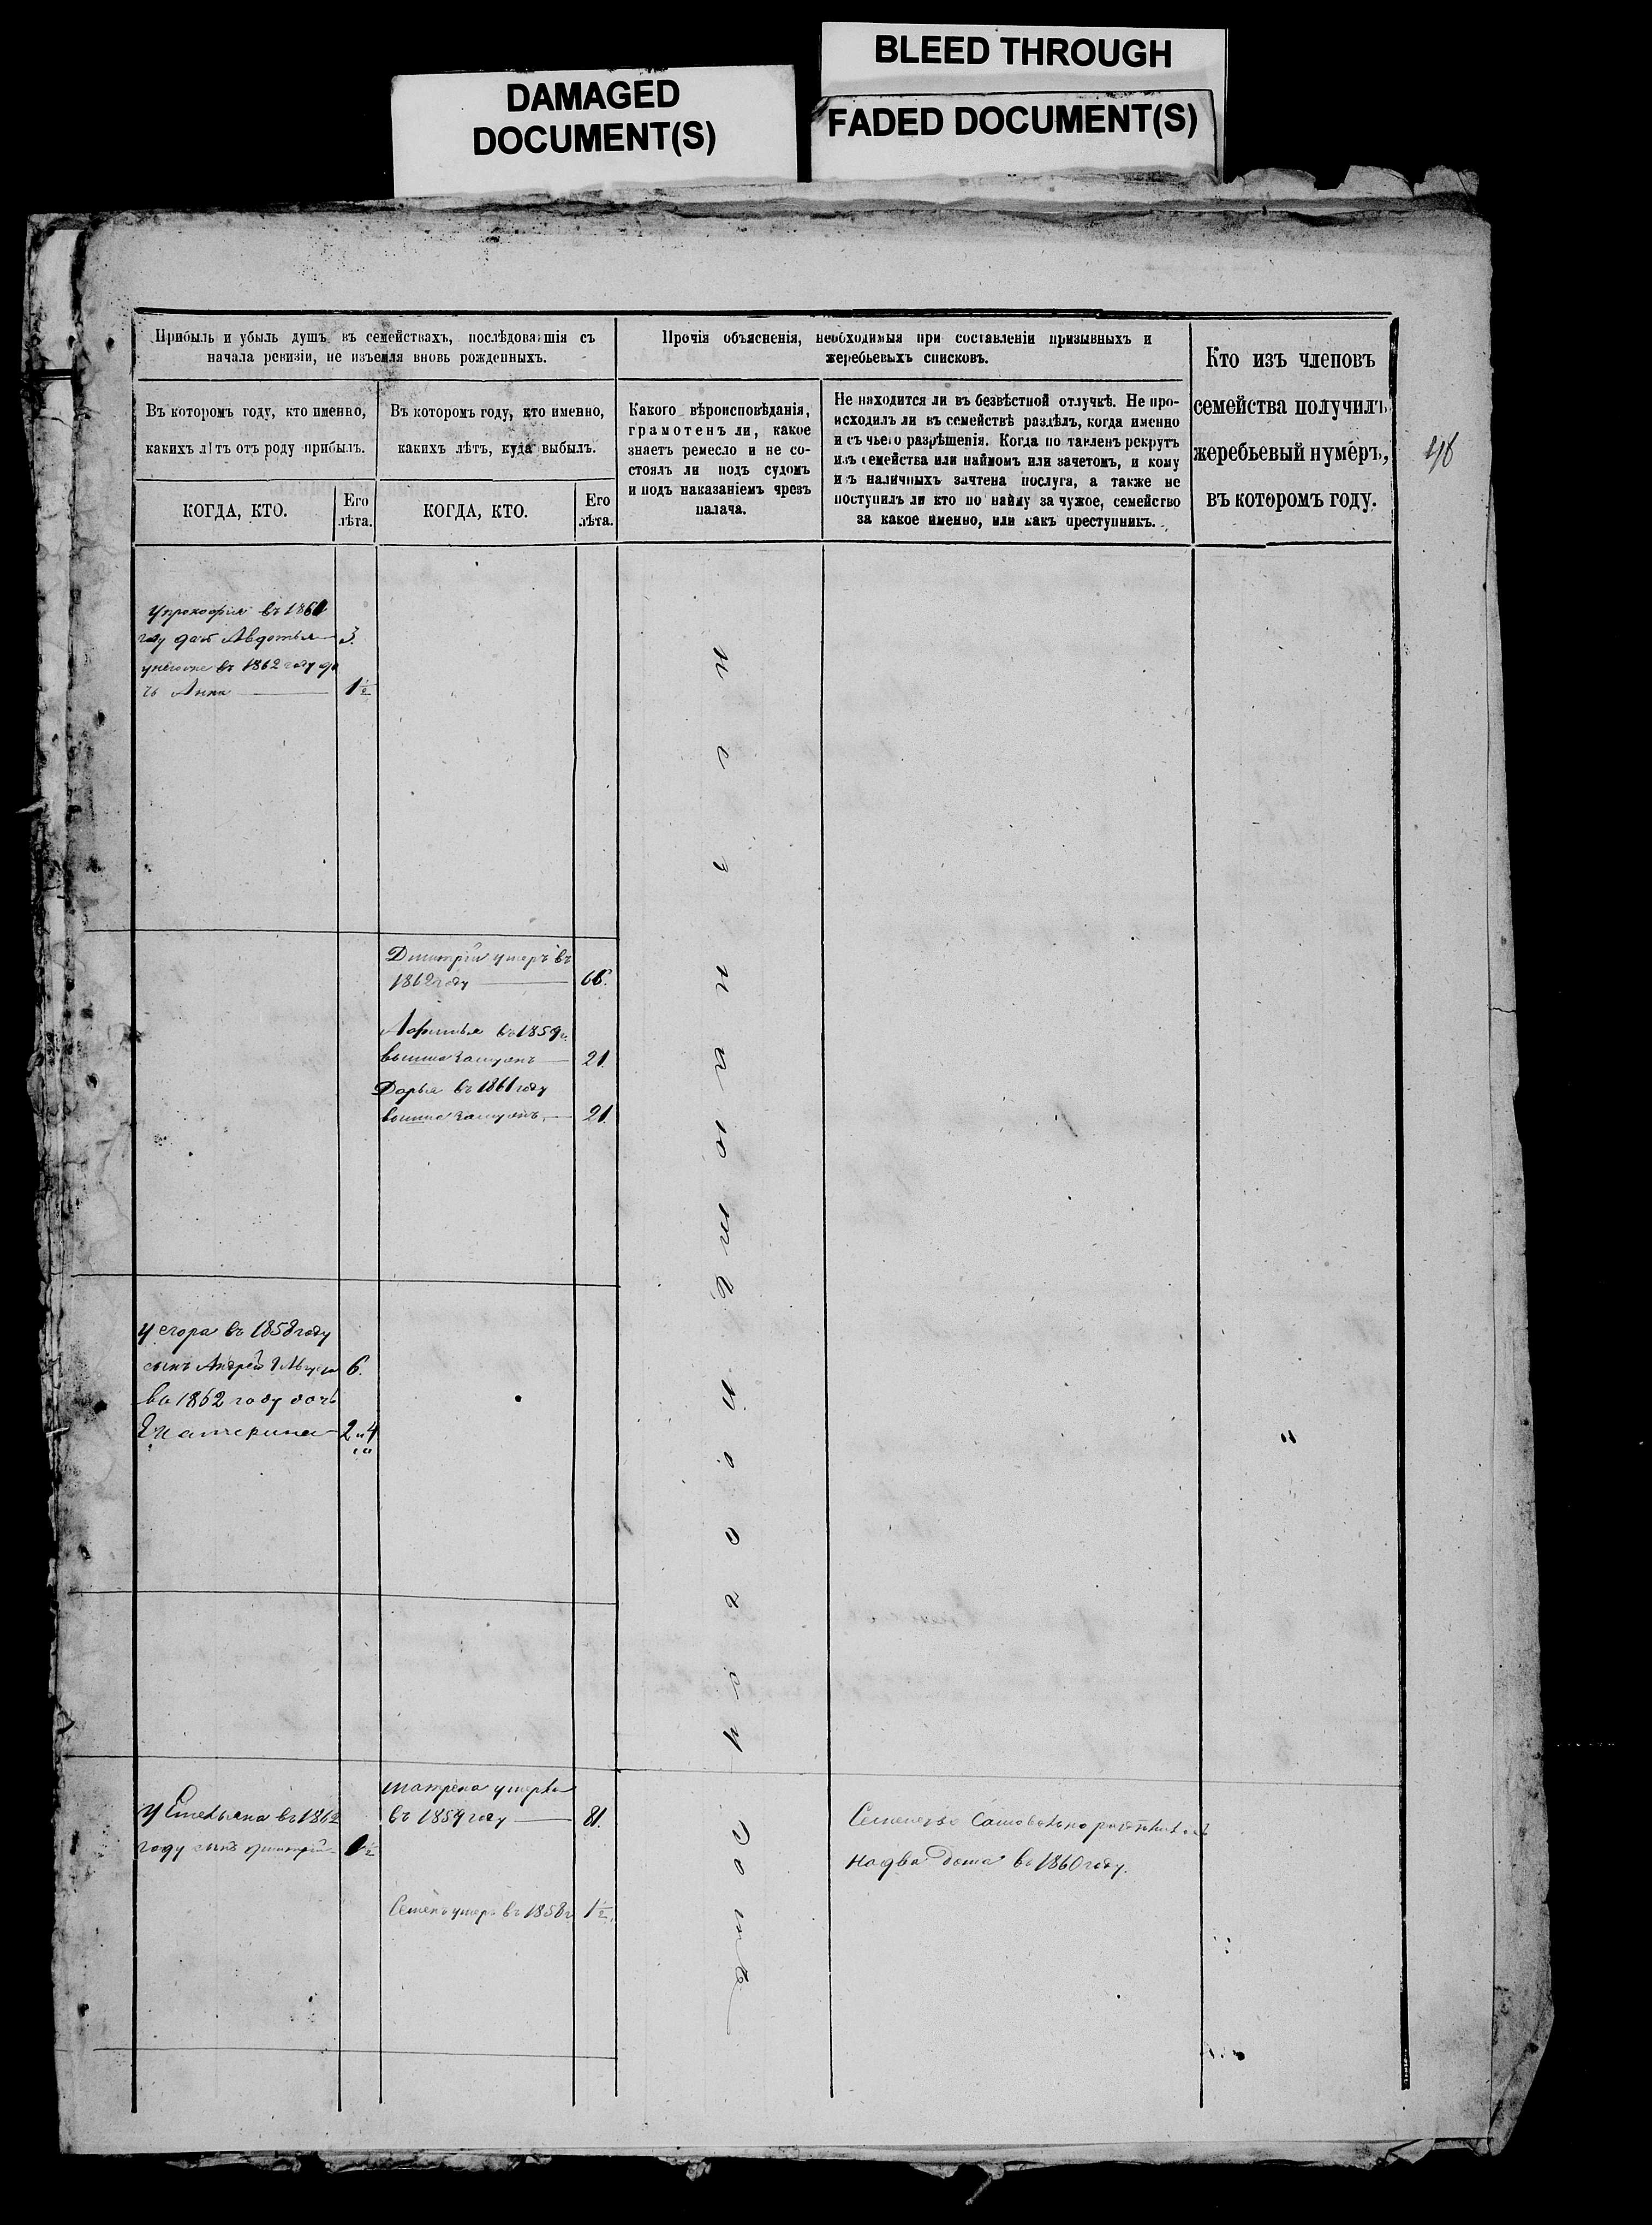 BLEED THROUGH
DAMAGED
DOCUMENT(S)
FADED DOCUMENT(S)
Прибыль и убыль душъ въ семействахъ, послѣдовавшія съ
начала ревизіи, не изъемля вновь рожденныхъ.
Прочія объясненія, необходимыя при составленіи призывныхъ и
жеребьевыхъ списковъ.
Кто изъ членовъ
семейства получилъ
жеребьевый нумеръ,
въ которомъ году.
Въ которомъ году, кто именно,
какихъ лѣтъ отъ роду прибылъ.
Въ которомъ году, кто именно,
какихъ лѣтъ, куда выбылъ.
Какого вѣроисповѣданія,
грамотенъ ли, какое
знаетъ ремесло и не со-
стоялъ ли подъ судомъ
и подъ наказаніемъ чрезъ
палача.
Не находится ли въ безвѣстной отлучкѣ. Не про-
исходилъ ли въ семействѣ раздѣлъ, когда именно
и съ чьего разрѣшенія. Когда поставленъ рекрутъ
изъ семейства или наймомъ или зачетомъ, и кому
изъ наличныхъ зачтена послуга, а также не
поступилъ ли кто по найму за чужое, семейство
за какое именно, или какъ преступникъ.
КОГДА, КТО.
Его
лѣта.
КОГДА, КТО.
Его
лѣта.
У прокофия въ 1861
году дочь Авдотья 3.
унегоже въ 1862 году до
чь Анна 1½
Дмитрій умеръ въ
1862 году 66.
въ 1859 г.
вышла замужъ 21.
Дарья въ 1861 году
вышла замужъ 21.
У егора въ 1858 году
сынъ Андрей 6.
во 1862 году дочь
Екатерина 2
матрена умерла
въ 1859 году 81.
У Емельяна въ 1862
году сынъ дмитрій 1½
Семенъ умеръ въ 1858 г. 1½
Самовольно
на два дома въ 1860 году.